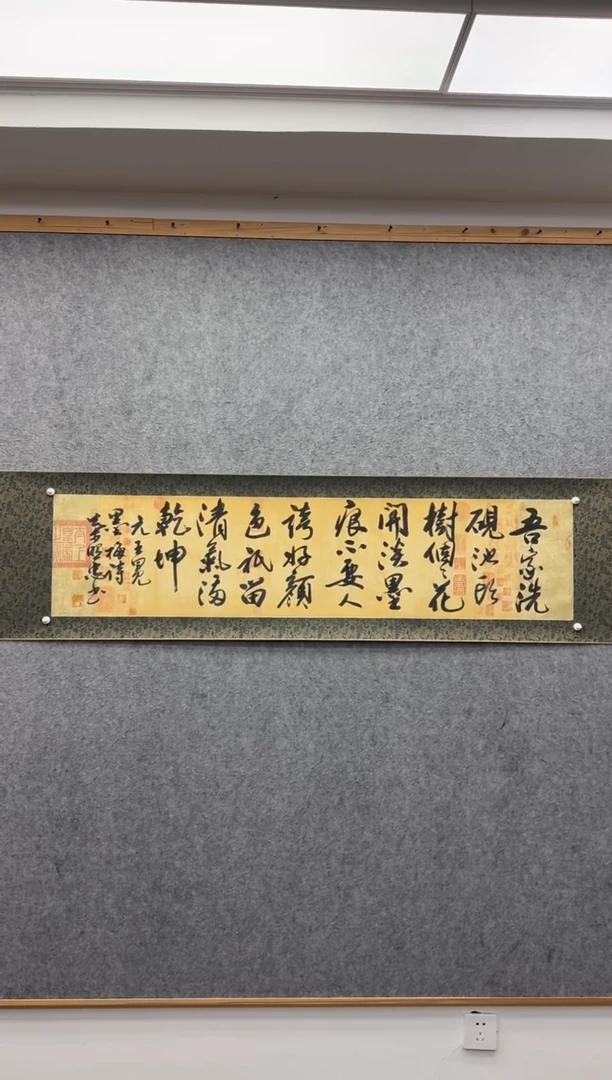 吾家洗
硯池頭
樹個々花
開淡墨
痕不要人
誇好顏
色祇留
清氣滿
乾坤
元王冕
墨梅詩
書